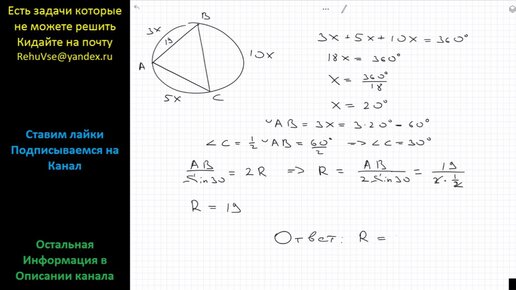 Есть задачи которые
не можете решить
Кидайте на почту
RehuVse@yandex.ru
Ставим лайки
Подписываемся на
Канал
Остальная
Информация в
Описании канала
B
3x
19
A
10x
5x
C
3x + 5x + 10x = 360°
18x = 360°
x = 360°/18
x = 20°
◡AB = 3x = 3·20° - 60°
∠C = 1/2 ◡AB = 60°/2 => ∠C = 30°
AB/Sin30 = 2R => R = AB/2Sin30 = 19/2·1/2
R = 19
Ответ: R =